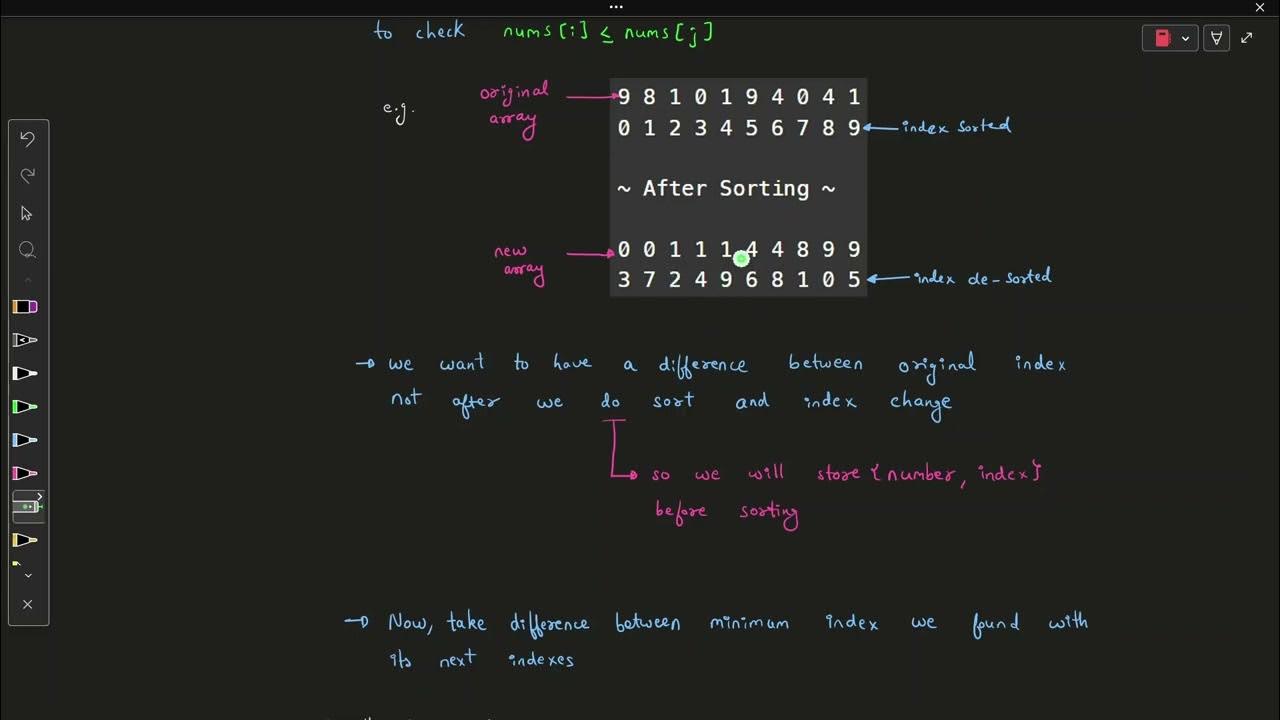 to check nums[i] ≤ nums[j]
e.g.
original array
9 8 1 0 1 9 4 0 4 1
0 1 2 3 4 5 6 7 8 9
index sorted
~ After Sorting ~
new array
0 0 1 1 1 4 4 8 9 9
3 7 2 4 9 6 8 1 0 5
index de-sorted
→ we want to have a difference between original index
not after we do sort and index change
so we will store {number, index}
before sorting
→ Now, take difference between minimum index we found with
its next indexes